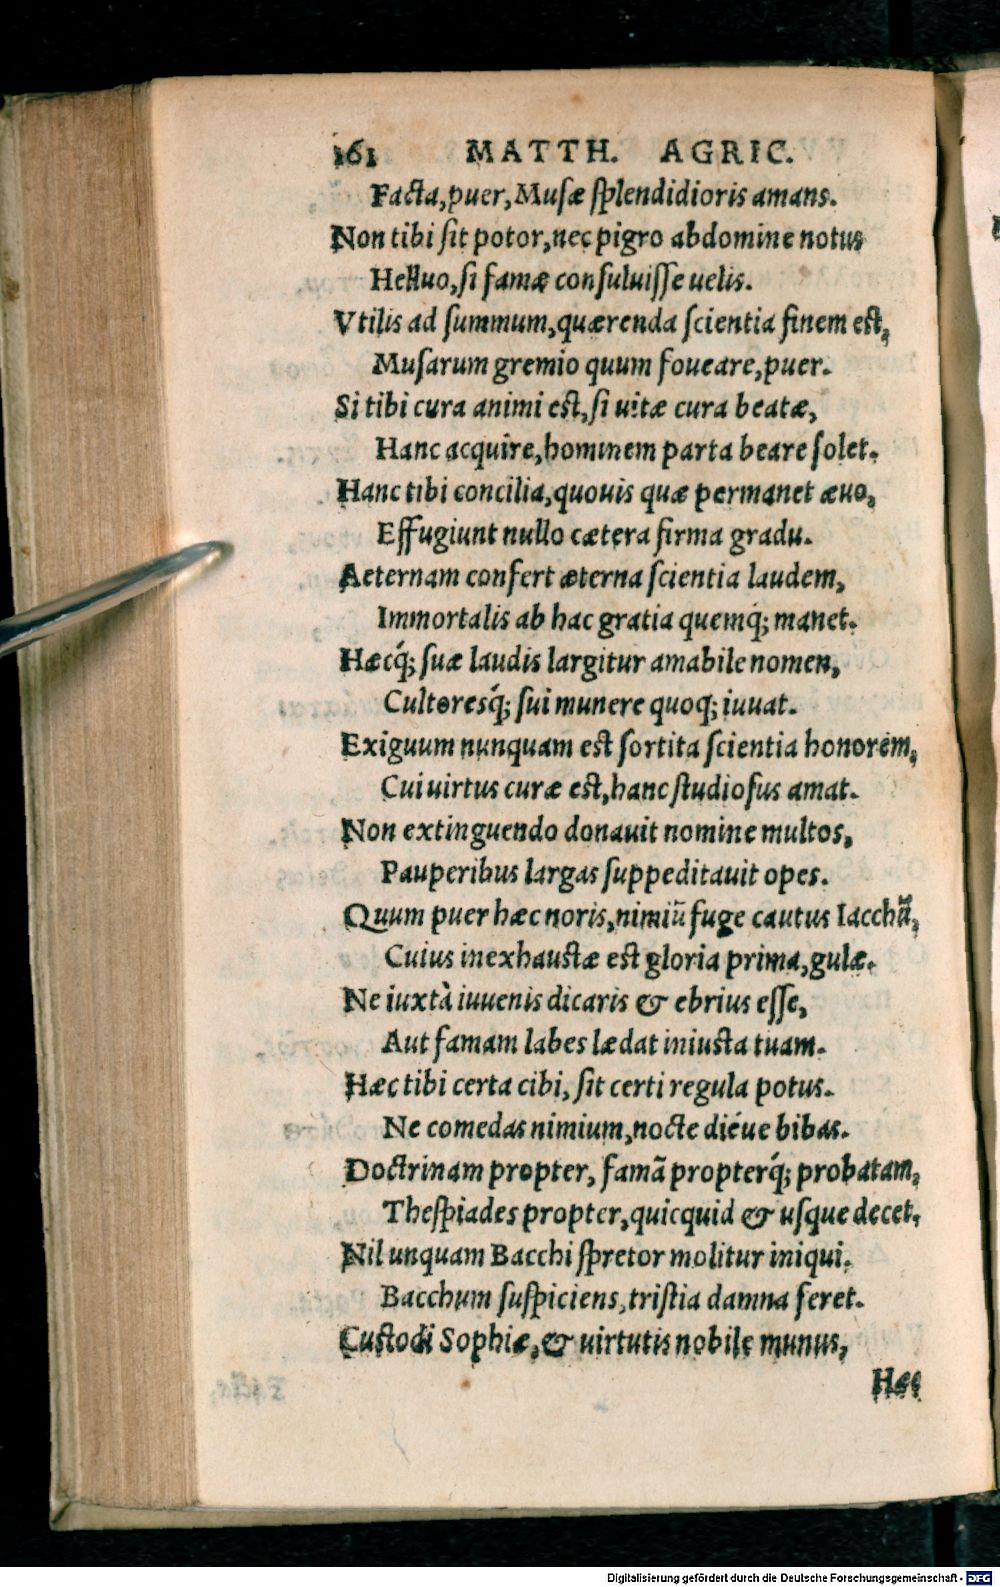 161 MATTH. AGRIC.
Facta, puer, Musæ ſplendidioris amans.
Non tibi ſit potor, nec pigro abdomine notus
Helluo, ſi famæ conſuluiſſe uelis.
Vtilis ad ſummum, quærenda ſcientia finem eſt,
Muſarum gremio quum foueare, puer.
Si tibi cura animi eſt, ſi uitæ cura beatæ,
Hanc acquire, hominem parta beare ſolet.
Hanc tibi concilia, quouis quæ permanet æuo,
Effugiunt nullo cætera firma gradu.
Aeternam confert æterna ſcientia laudem,
Immortalis ab hac gratia quemq́; manet.
Hæcq́; ſuæ laudis largitur amabile nomen,
Cultoresq́; ſui munere quoq; iuuat.
Exiguum nunquam eſt ſortita ſcientia honorem,
Cui uirtus curæ eſt, hanc ſtudioſus amat.
Non extinguendo donauit nomine multos,
Pauperibus largas ſuppeditauit opes.
Quum puer hæc noris, nimiũ fuge cautus Iacchũ,
Cuius inexhauſtæ eſt gloria prima, gulæ.
Ne iuxtà iuuenis dicaris & ebrius eſſe,
Aut famam labes lædat iniuſta tuam.
Hæc tibi certa cibi, ſit certi regula potus.
Ne comedas nimium, nocte diéue bibas.
Doctrinam propter, famã propterq́; probatam,
Theſpiades propter, quicquid & uſque decet.
Nil unquam Bacchi ſpretor molitur iniqui.
Bacchum ſuſpiciens, triſtia damna feret.
Cuſtodi Sophiæ, & uirtutis nobile munus,
Hæc
Digitalisierung gefördert durch die Deutsche Forschungsgemeinschaft - DFG